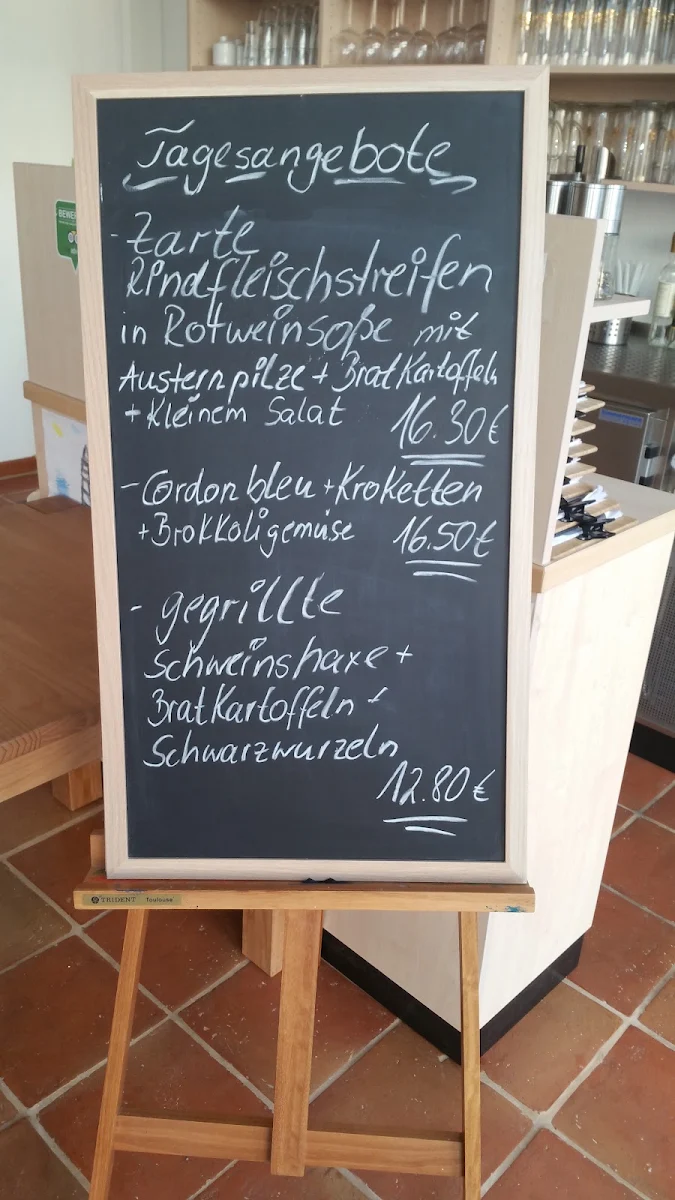 Tagesangebote
- Zarte
Rindfleischstreifen
in Rotweinsoße mit
Austernpilze + Bratkartoffeln
+ Kleinem Salat 16.30€
- Cordon bleu + Kroketten
+ Brokkoligemüse 16.50€
- gegrillte
Schweinshaxe +
Bratkartoffeln +
Schwarzwurzeln
12.80€
TRIDENT Toulouse